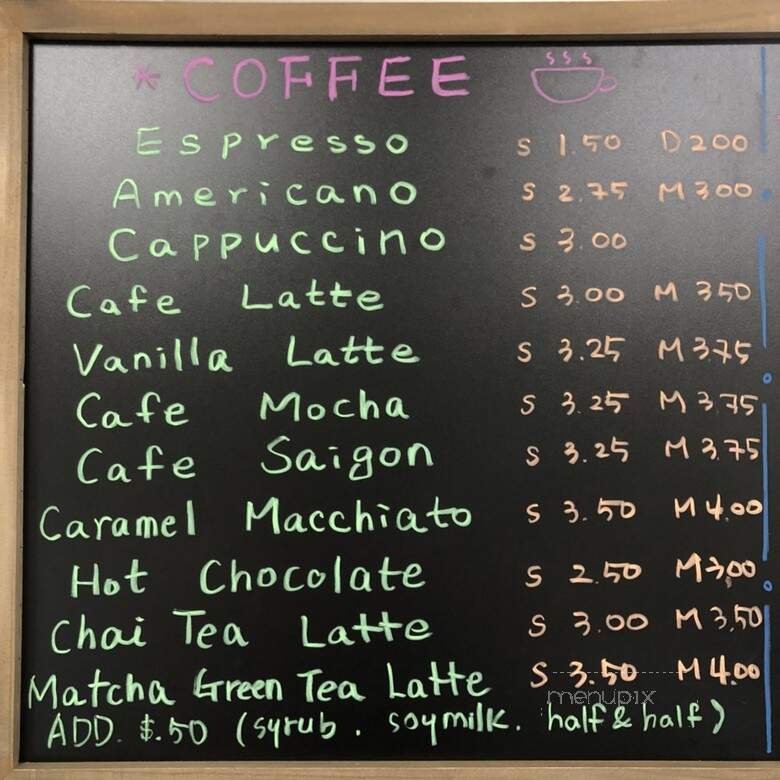 * COFFEE
Espresso S 1.50 D 200
Americano S 2.75 M 3.00
Cappuccino S 3.00
Cafe Latte S 3.00 M 3.50
Vanilla Latte S 3.25 M 3.75
Cafe Mocha S 3.25 M 3.75
Cafe Saigon S 3.25 M 3.75
Caramel Macchiato S 3.50 M 4.00
Hot Chocolate S 2.50 M 3,00
Chai Tea Latte S 3.00 M 3.50
Matcha Green Tea Latte S 3.50 M 4.00
menupix
ADD. $.50 (syrub. soymilk. half & half)